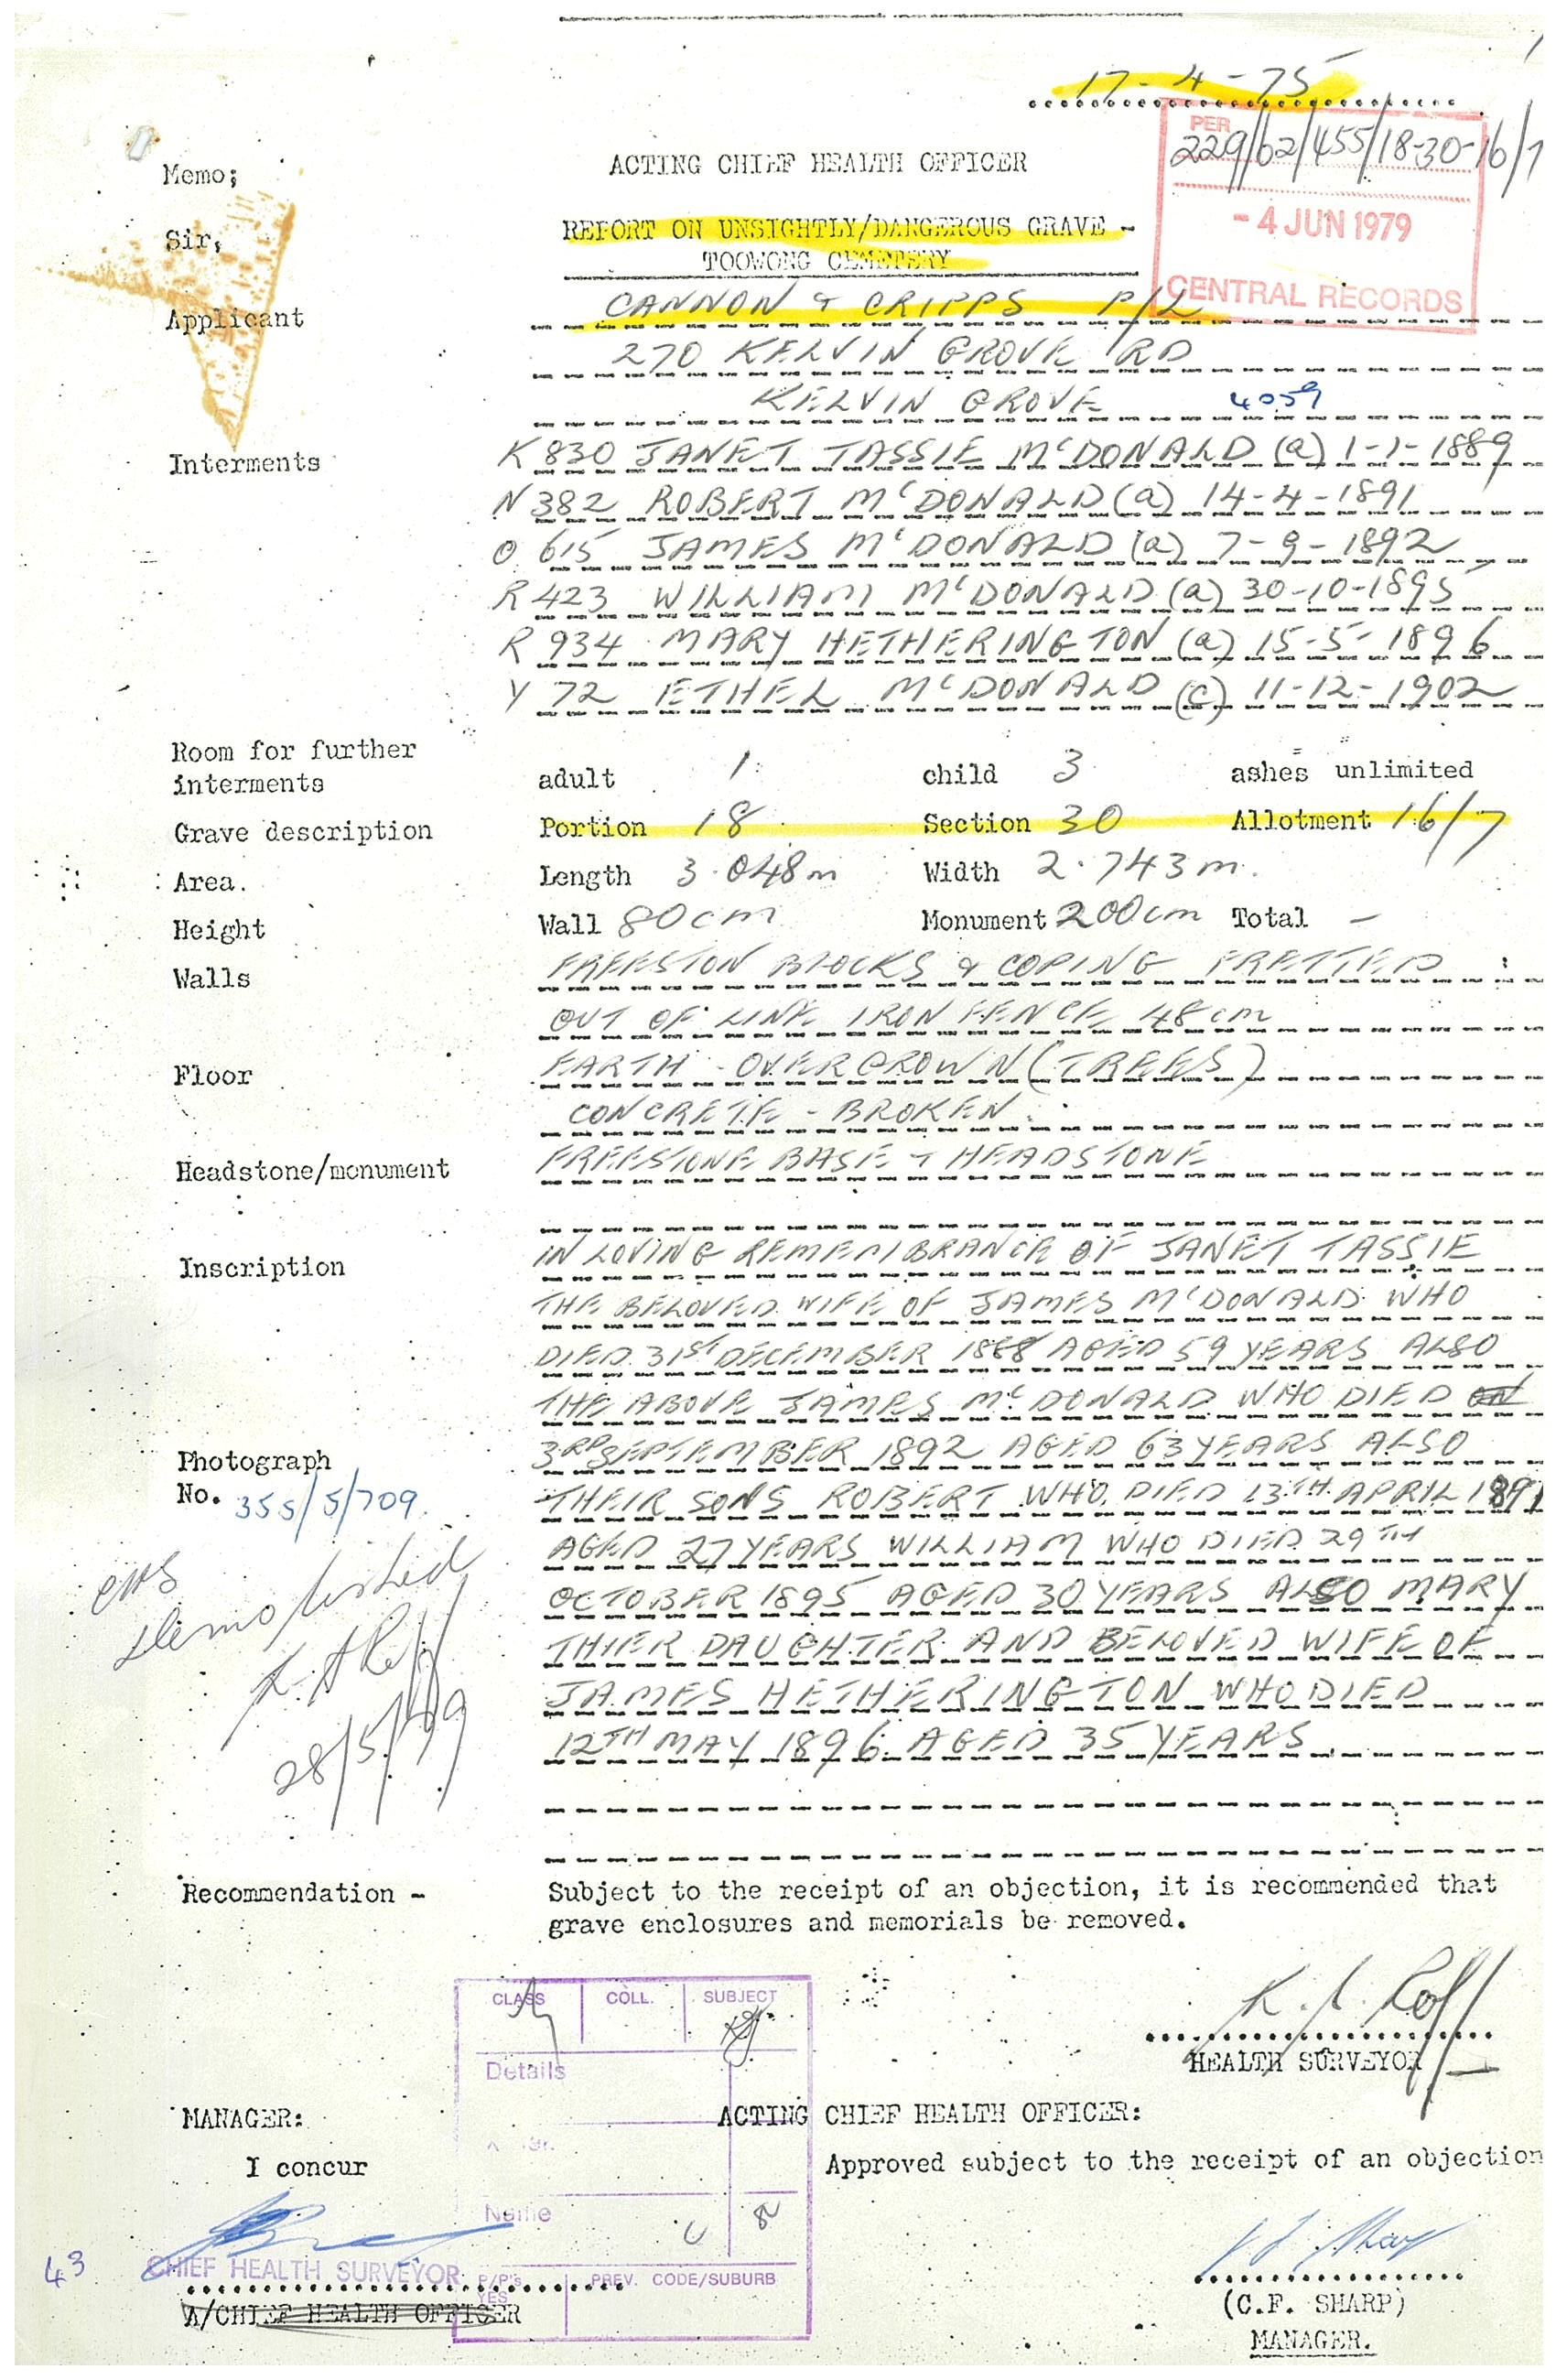 17-4-75
PER
229/62/455/18-30-16/7
- 4 JUN 1979
CENTRAL RECORDS
ACTING CHIEF HEALTH OFFICER
Memo;
Sir,
REPORT ON UNSIGHTLY/DANGEROUS GRAVE -
TOOWONG CEMETERY
Applicant CANNON & CRIPPS P/L
270 KELVIN GROVE RD
KELVIN GROVE 4059
Interments K 830 JANET TASSIE McDONALD (a) 1-1-1889
N 382 ROBERT McDONALD (a) 14-4-1891
O 615 JAMES McDONALD (a) 7-9-1892
R 423 WILLIAM McDONALD (a) 30-10-1895
R 934 MARY HETHERINGTON (a) 15-5-1896
Y 72 ETHEL McDONALD (c) 11-12-1902
Room for further
interments adult 1 child 3 ashes unlimited
Grave description Portion 18 Section 30 Allotment 16/7
Area. Length 3.048m Width 2.743m.
Height Wall 80cm Monument 200cm Total -
Walls FREESTON BLOCKS & COPING FRETTED
OUT OF LINE IRON FENCE 48cm
Floor EARTH - OVERGROWN (TREES)
CONCRETE - BROKEN.
Headstone/monument FREESTONE BASE & HEADSTONE
Inscription IN LOVING REMEMBRANCE OF JANET TASSIE
THE BELOVED WIFE OF JAMES McDONALD WHO
DIED 31ST DECEMBER 1888 AGED 59 YEARS ALSO
THE ABOVE JAMES McDONALD WHO DIED ON
3RD SEPTEMBER 1892 AGED 63 YEARS ALSO
THEIR SONS ROBERT WHO DIED 13TH APRIL 1891
AGED 27 YEARS WILLIAM WHO DIED 29TH
OCTOBER 1895 AGED 30 YEARS ALSO MARY
THIER DAUGHTER AND BELOVED WIFE OF
JAMES HETHERINGTON WHO DIED
12TH MAY 1896 AGED 35 YEARS.
Photograph
No. 355/5/709.
demolished
28/5/79
Recommendation - Subject to the receipt of an objection, it is recommended that
grave enclosures and memorials be removed.
HEALTH SURVEYOR
CLASS COLL. SUBJECT
Details
Name
P/P's
YES
PREV. CODE/SUBURB
MANAGER:
I concur
ACTING CHIEF HEALTH OFFICER:
Approved subject to the receipt of an objection
43
CHIEF HEALTH SURVEYOR
A/CHIEF HEALTH OFFICER
(C.F. SHARP)
MANAGER.